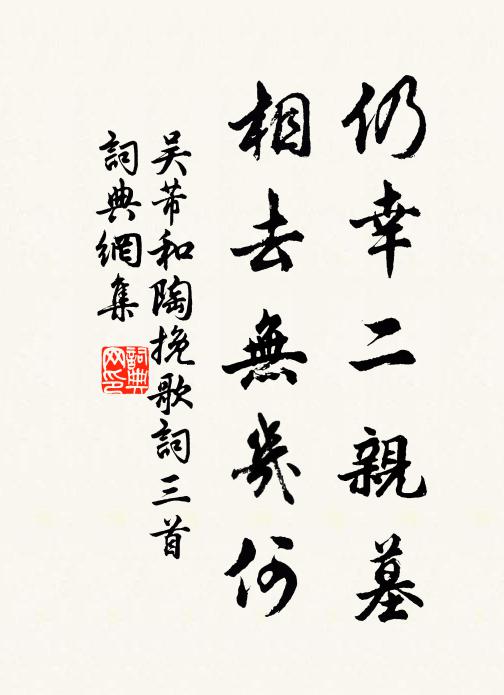 仍幸二親墓
相去無幾何
吴芾和陶挽歌詞三首
詞典網集
詞典網印